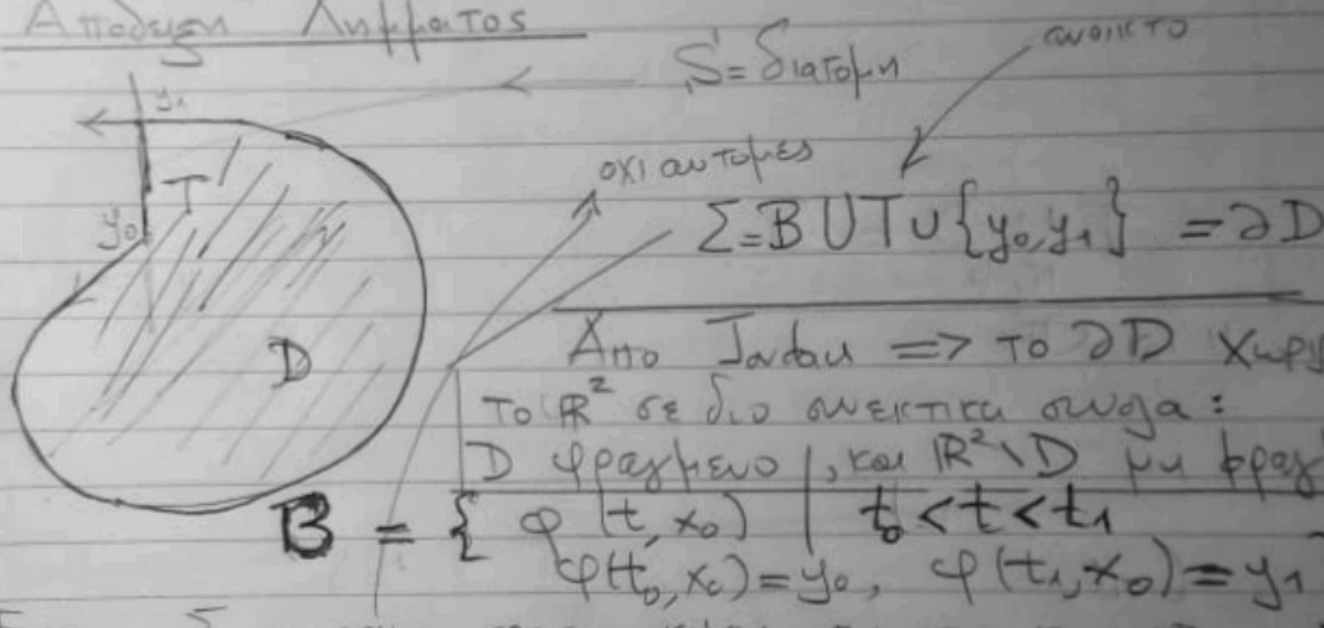 Αποδειξη Λημματος
S = διατομη
ανοικτο
y₁
οχι αυτομες
T
y₀
Σ = B ∪ T ∪ {y₀, y₁} = ∂D
D
Απο Jordan => το ∂D χωρι
το ℝ² σε διο συνεκτικα συνολα :
D φραγμενο , και ℝ²\D μη φραγ
B = { φ(t, x₀) | t₀ < t < t₁
φ(t₀, x₀) = y₀, φ(t₁, x₀) = y₁